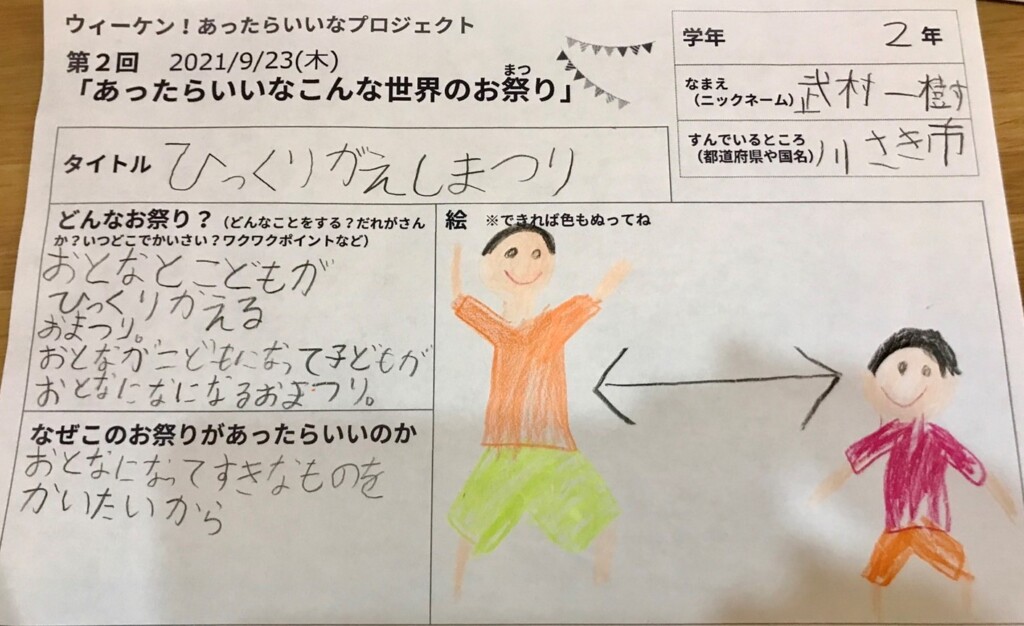 ウィーケン！あったらいいなプロジェクト
第２回　2021/9/23(木)
まつ
「あったらいいなこんな世界のお祭り」
学年 2 年
なまえ
（ニックネーム） 武村 一樹す
すんでいるところ
（都道府県や国名） 川さき市
タイトル ひっくりがえしまつり
どんなお祭り？（どんなことをする？だれがさん
か？いつどこでかいさい？ワクワクポイントなど）
おとなとこどもが
ひっくりがえる
おまつり。
おとながこどもになって子どもが
おとなになになるおまつり。
なぜこのお祭りがあったらいいのか
おとなになってすきなものを
かいたいから
絵　※できれば色もぬってね